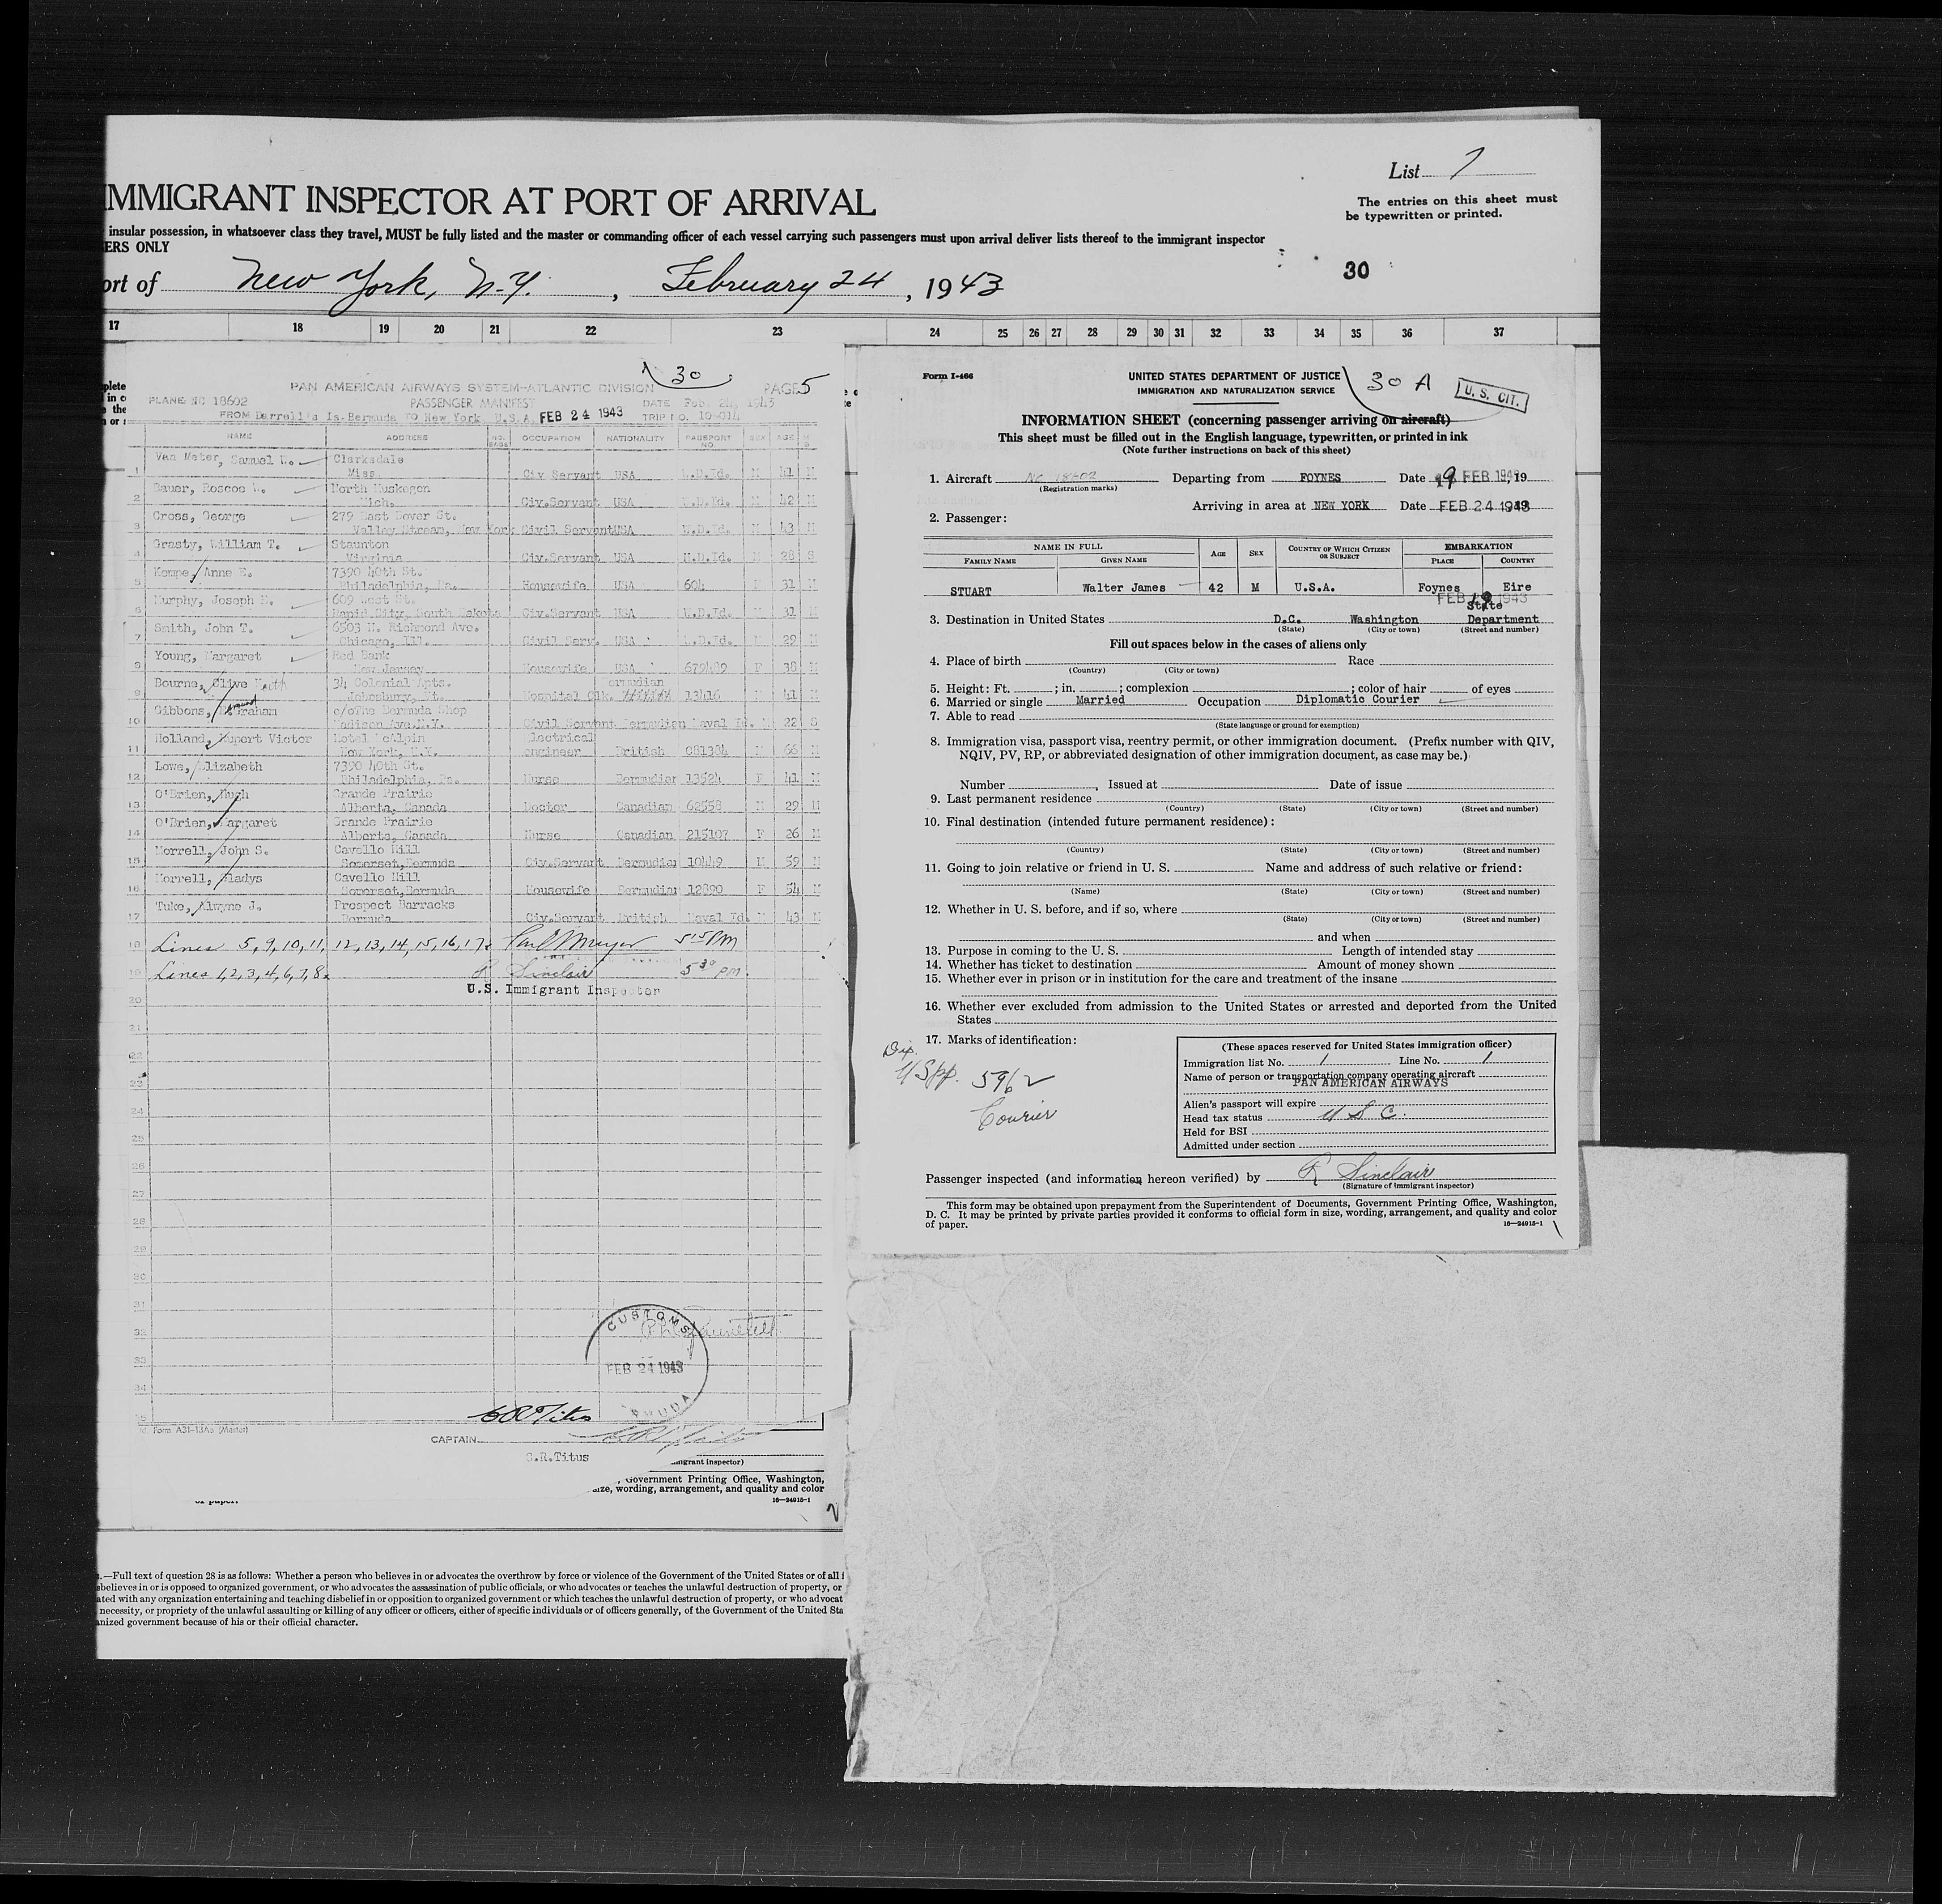 List 7
The entries on this sheet must
be typewritten or printed.
IMMIGRANT INSPECTOR AT PORT OF ARRIVAL
insular possession, in whatsoever class they travel, MUST be fully listed and the master or commanding officer of each vessel carrying such passengers must upon arrival deliver lists thereof to the immigrant inspector
ERS ONLY
30
ort of New York, N.Y. , February 24 , 1943
17 18 19 20 21 22 23 24 25 26 27 28 29 30 31 32 33 34 35 36 37
30
PAN AMERICAN AIRWAYS SYSTEM-ATLANTIC DIVISION PAGE 5
PLANE NC 18602 PASSENGER MANIFEST DATE Feb. 24, 1943
FROM Darrell's Is. Bermuda TO New York, U.S.A. FEB 24 1943 TRIP NO. 10-014
NAME ADDRESS NO. BAGS OCCUPATION NATIONALITY PASSPORT NO. SEX AGE
Van Meter, Samuel Clarksdale
1 Miss. Civ Servant USA W.D.Id. M 41 M
Bauer, Roscoe North Muskegon
2 Mich. Civ.Servant USA W.D.Id. M 42 M
Cross, George 279 East Dover St.
3 Valley Stream, New York Civil Servant USA W.D.Id. M 43 M
Grasty, William T. Staunton
4 Virginia Civ.Servant USA W.D.Id. M 28 S
Kempe, Anne E. 7390 40th St.
5 Philadelphia, Pa. Housewife USA 604 F 31 M
Murphy, Joseph 609 East St.
6 Rapid City, South Dakota Civ.Servant USA W.D.Id. M 31 M
Smith, John T. 6503 N. Richmond Ave.
7 Chicago, Ill. Civil Serv. USA W.D.Id. M 29 M
Young, Margaret Red Bank
8 New Jersey Housewife USA 679489 F 38 M
Bourne, Clive Keith 34 Colonial Apts. Bermudian
9 Johnsbury, Vt. Hospital Clk. 13416 M 41 M
Gibbons, Graham c/o The Bermuda Shop
10 Madison Ave.N.Y. Civil Servant Bermudian Naval Id. M 22 S
Holland, Rupert Victor Hotel McAlpin Electrical
11 New York, N.Y. engineer British C81384 M 66 M
Lowe, Elizabeth 7390 40th St.
12 Philadelphia, Pa. Nurse Bermudian 13524 F 41 M
O'Brien, Hugh Grande Prairie
13 Alberta, Canada Doctor Canadian 62558 M 29 M
O'Brien, Margaret Grande Prairie
14 Alberta, Canada Nurse Canadian 215107 F 26 M
Morrell, John S. Cavello Hill
15 Somerset,Bermuda Civ.Servant Bermudian 10449 M 59 M
Morrell, Gladys Cavello Hill
16 Somerset,Bermuda Housewife Bermudian 12890 F 54 M
Tuke, Alwyne J. Prospect Barracks
17 Bermuda Civ.Servant British Naval Id. M 43 M
18 Lines 5, 9, 10, 11, 12, 13, 14, 15, 16, 17. 5 15 PM
19 Lines 1, 2, 3, 4, 6, 7, 8. R Sinclair 5 30 pm
U.S. Immigrant Inspector
20
21
22
23
24
25
26
27
28
29
30
31
32
33
34
35
CUSTOMS
FEB 24 1943
Form A31-13As (Master)
CAPTAIN C R Titus
C.R.Titus
migrant inspector)
, Government Printing Office, Washington,
size, wording, arrangement, and quality and color
of paper. 16—24915-1
.—Full text of question 28 is as follows: Whether a person who believes in or advocates the overthrow by force or violence of the Government of the United States or of all
sbelieves in or is opposed to organized government, or who advocates the assassination of public officials, or who advocates or teaches the unlawful destruction of property, or
ated with any organization entertaining and teaching disbelief in or opposition to organized government or which teaches the unlawful destruction of property, or who advocat
necessity, or propriety of the unlawful assaulting or killing of any officer or officers, either of specific individuals or of officers generally, of the Government of the United Sta
anized government because of his or their official character.
Form I-466
UNITED STATES DEPARTMENT OF JUSTICE
IMMIGRATION AND NATURALIZATION SERVICE
30 A
U. S. CIT.
INFORMATION SHEET (concerning passenger arriving on aircraft)
This sheet must be filled out in the English language, typewritten, or printed in ink
(Note further instructions on back of this sheet)
1. Aircraft NC 18602 Departing from FOYNES Date 19 FEB 1943, 19
(Registration marks)
Arriving in area at NEW YORK Date FEB 24 1943
2. Passenger:
NAME IN FULL AGE SEX COUNTRY OF WHICH CITIZEN OR SUBJECT EMBARKATION
FAMILY NAME GIVEN NAME PLACE COUNTRY
STUART Walter James 42 M U.S.A. Foynes Eire
FEB 19 1943
State
3. Destination in United States D.C. Washington Department
(State) (City or town) (Street and number)
Fill out spaces below in the cases of aliens only
4. Place of birth Race
(Country) (City or town)
5. Height: Ft. ; in. ; complexion ; color of hair of eyes
6. Married or single Married Occupation Diplomatic Courier
7. Able to read
(State language or ground for exemption)
8. Immigration visa, passport visa, reentry permit, or other immigration document. (Prefix number with QIV,
NQIV, PV, RP, or abbreviated designation of other immigration document, as case may be.)
Number , Issued at Date of issue
9. Last permanent residence
(Country) (State) (City or town) (Street and number)
10. Final destination (intended future permanent residence):
(Country) (State) (City or town) (Street and number)
11. Going to join relative or friend in U. S. Name and address of such relative or friend:
(Name) (State) (City or town) (Street and number)
12. Whether in U. S. before, and if so, where
(State) (City or town) (Street and number)
and when
13. Purpose in coming to the U. S. Length of intended stay
14. Whether has ticket to destination Amount of money shown
15. Whether ever in prison or in institution for the care and treatment of the insane
16. Whether ever excluded from admission to the United States or arrested and deported from the United
States
17. Marks of identification:
Dip.
USpp. 5962
Courier
(These spaces reserved for United States immigration officer)
Immigration list No. 1 Line No. 1
Name of person or transportation company operating aircraft
PAN AMERICAN AIRWAYS
Alien's passport will expire
Head tax status U S C.
Held for BSI
Admitted under section
Passenger inspected (and information hereon verified) by R Sinclair
(Signature of immigrant inspector)
This form may be obtained upon prepayment from the Superintendent of Documents, Government Printing Office, Washington,
D. C. It may be printed by private parties provided it conforms to official form in size, wording, arrangement, and quality and color
of paper. 16—24915-1